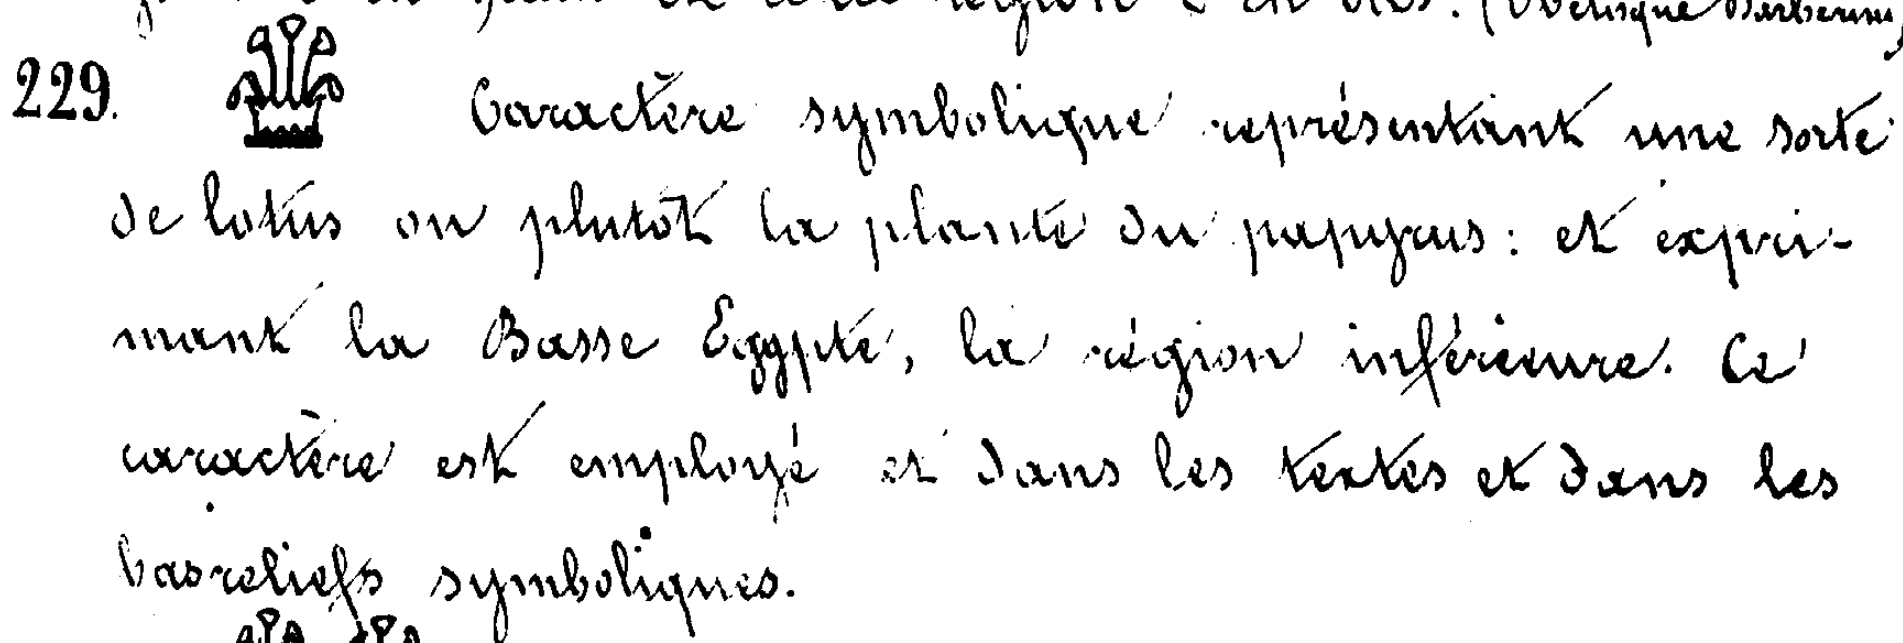 région (Obélisque Barberini)
229. Caractère symbolique représentant une sorte
de lotus ou plutôt la plante du papyrus : et expri-
mant la Basse Egypte, la région inférieure. Ce
caractère est employé et dans les textes et dans les
basreliefs symboliques.